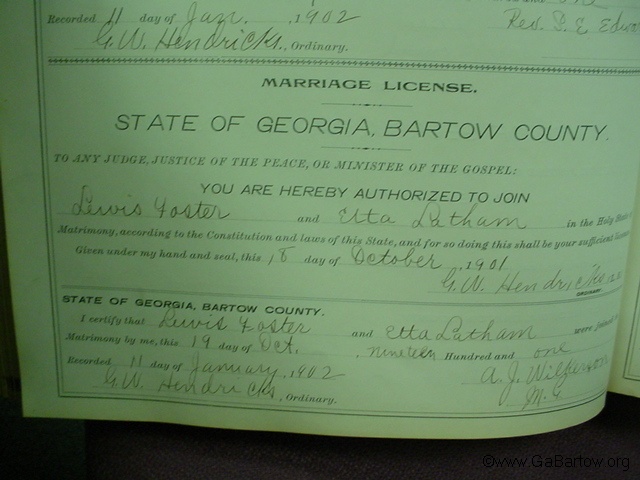 Recorded 11 day of Jan. , 1902
Rev. S. E.
G.W. Hendricks, Ordinary.
MARRIAGE LICENSE.
STATE OF GEORGIA, BARTOW COUNTY.
TO ANY JUDGE, JUSTICE OF THE PEACE, OR MINISTER OF THE GOSPEL:
YOU ARE HEREBY AUTHORIZED TO JOIN
Lewis Foster and Etta Latham in the Holy
Matrimony, according to the Constitution and laws of this State, and for so doing this shall be your sufficient
Given under my hand and seal, this 18 day of October , 1901
G.W. Hendricks
ORDINARY.
STATE OF GEORGIA, BARTOW COUNTY.
I certify that Lewis Foster and Etta Latham were joined
Matrimony by me, this 19 day of Oct. , nineteen Hundred and one
Recorded 11 day of January , 1902 A. J. Wilkerson
G.W. Hendricks, Ordinary. M.G.
©www.GaBartow.org